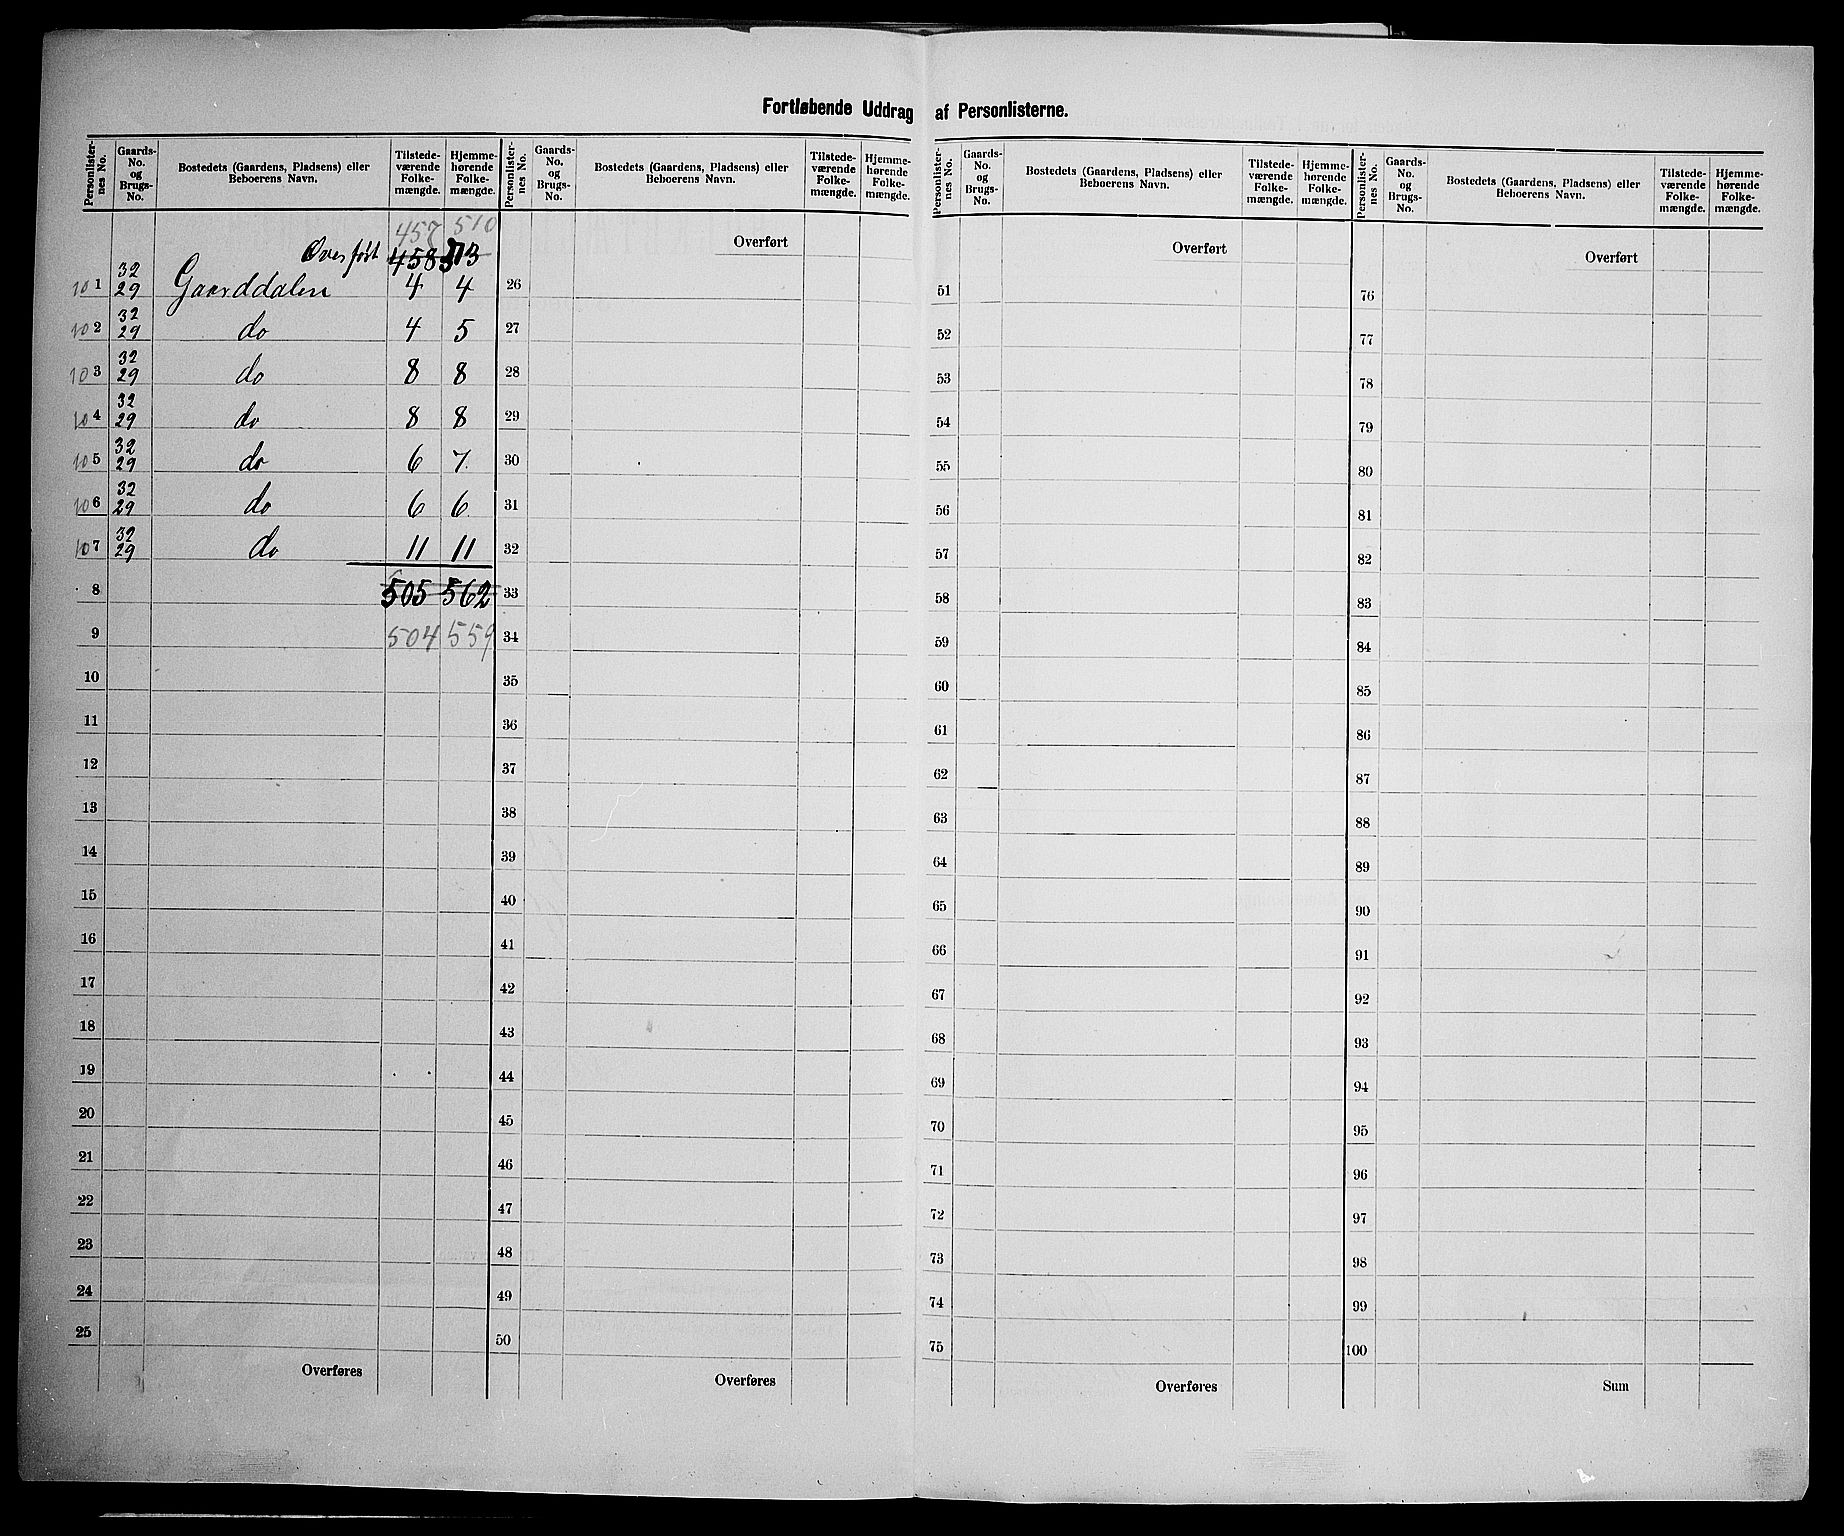 Fortløbende Uddrag af Personlisterne.
Personlister-nes No. | Gaards-No. og Brugs-No. | Bostedets (Gaardens, Pladsens) eller Beboerens Navn. | Tilstede-værende Folke-mængde. | Hjemme-hørende Folke-mængde.
Personlister-nes No. | Gaards-No. og Brugs-No. | Bostedets (Gaardens, Pladsens) eller Beboerens Navn. | Tilstede-værende Folke-mængde. | Hjemme-hørende Folke-mængde.
Personlister-nes No. | Gaards-No. og Brugs-No. | Bostedets (Gaardens, Pladsens) eller Beboerens Navn. | Tilstede-værende Folke-mængde. | Hjemme-hørende Folke-mængde.
Personlister-nes No. | Gaards-No. og Brugs-No. | Bostedets (Gaardens, Pladsens) eller Beboerens Navn. | Tilstede-værende Folke-mængde. | Hjemme-hørende Folke-mængde.
457 510
Overført 458 513
101 32/29 Gaarddalen 4 4
102 32/29 do 4 5
103 32/29 do 8 8
104 32/29 do 8 8
105 32/29 do 6 7
106 32/29 do 6 6
107 32/29 do 11 11
8 505 562
9 504 559
10
11
12
13
14
15
16
17
18
19
20
21
22
23
24
25
Overføres
Overført
26
27
28
29
30
31
32
33
34
35
36
37
38
39
40
41
42
43
44
45
46
47
48
49
50
Overføres
Overført
51
52
53
54
55
56
57
58
59
60
61
62
63
64
65
66
67
68
69
70
71
72
73
74
75
Overføres
Overført
76
77
78
79
80
81
82
83
84
85
86
87
88
89
90
91
92
93
94
95
96
97
98
99
100
Sum